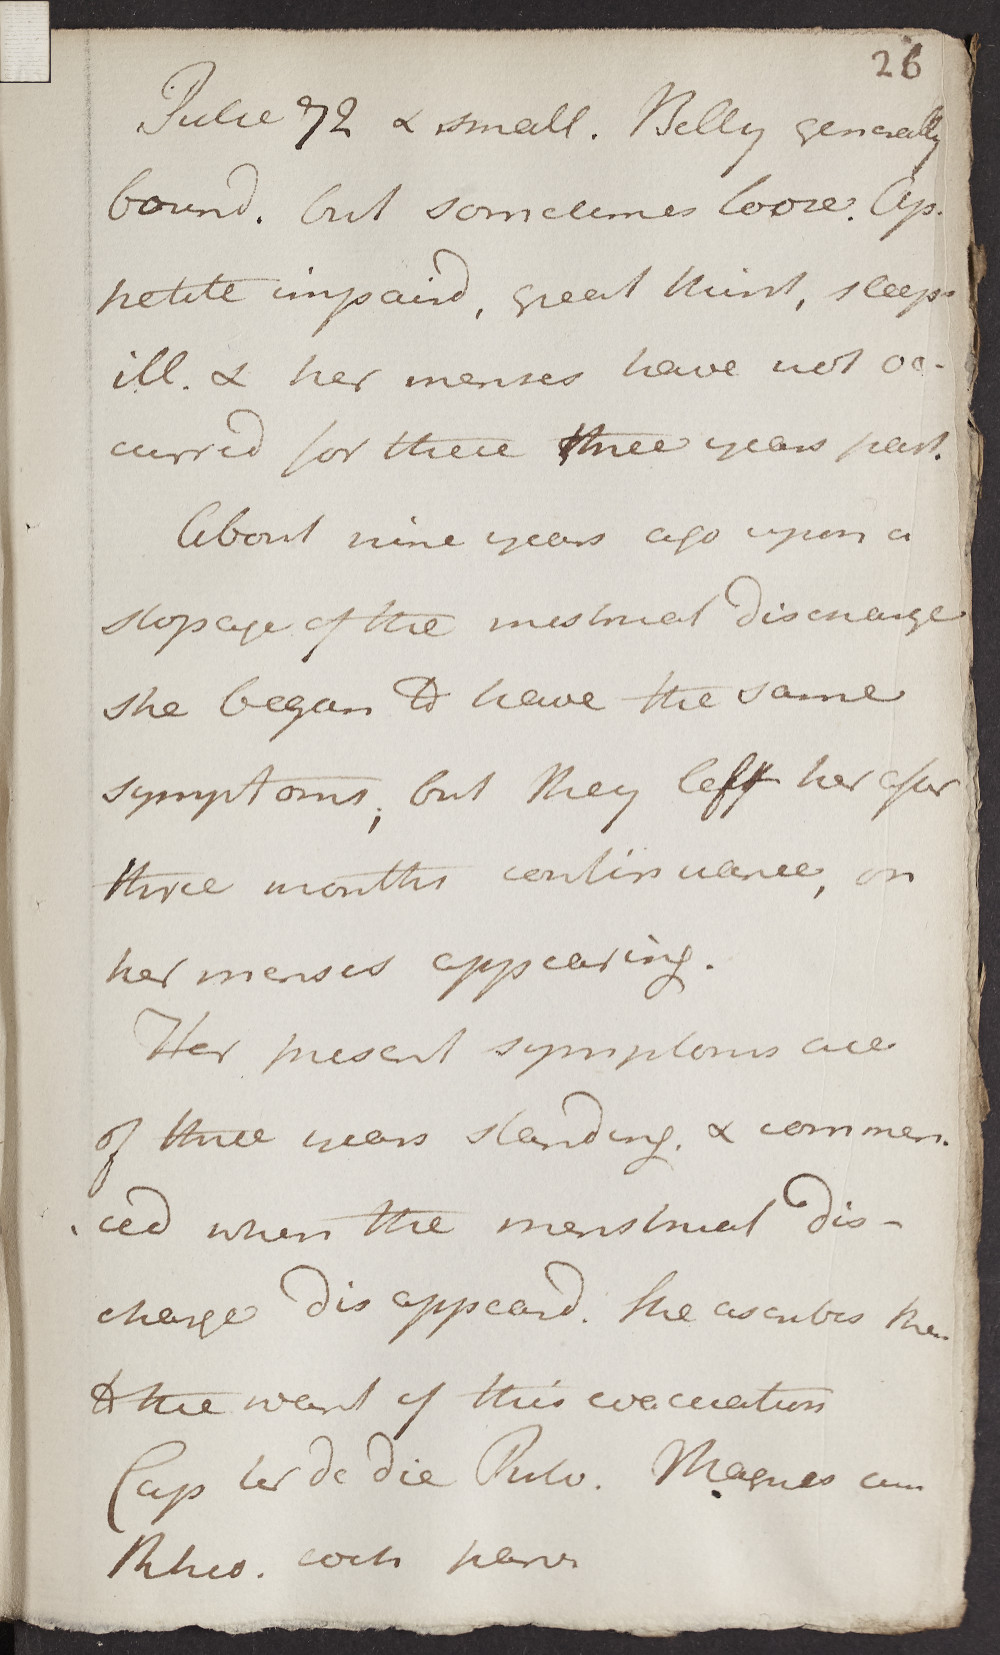 26
Pulse 72 & small. Belly generally
bound. but sometimes loose. Ap-
petite impaird, great thirst, sleeps
ill. & her menses have not oc-
curred for these three years past.
About nine years ago upon a
stopage of the mestrual discharge
she began to have the same
symptoms; but they left her after
three months continuance, on
her menses appearing.
Her present symptoms are
of three years standing. & commen-
ced when the menstrual dis-
charge disappeard. She ascribes them
to the want of this evacuation
Cap ter de die Pulv. Magnes cum
Rheo. coch parv